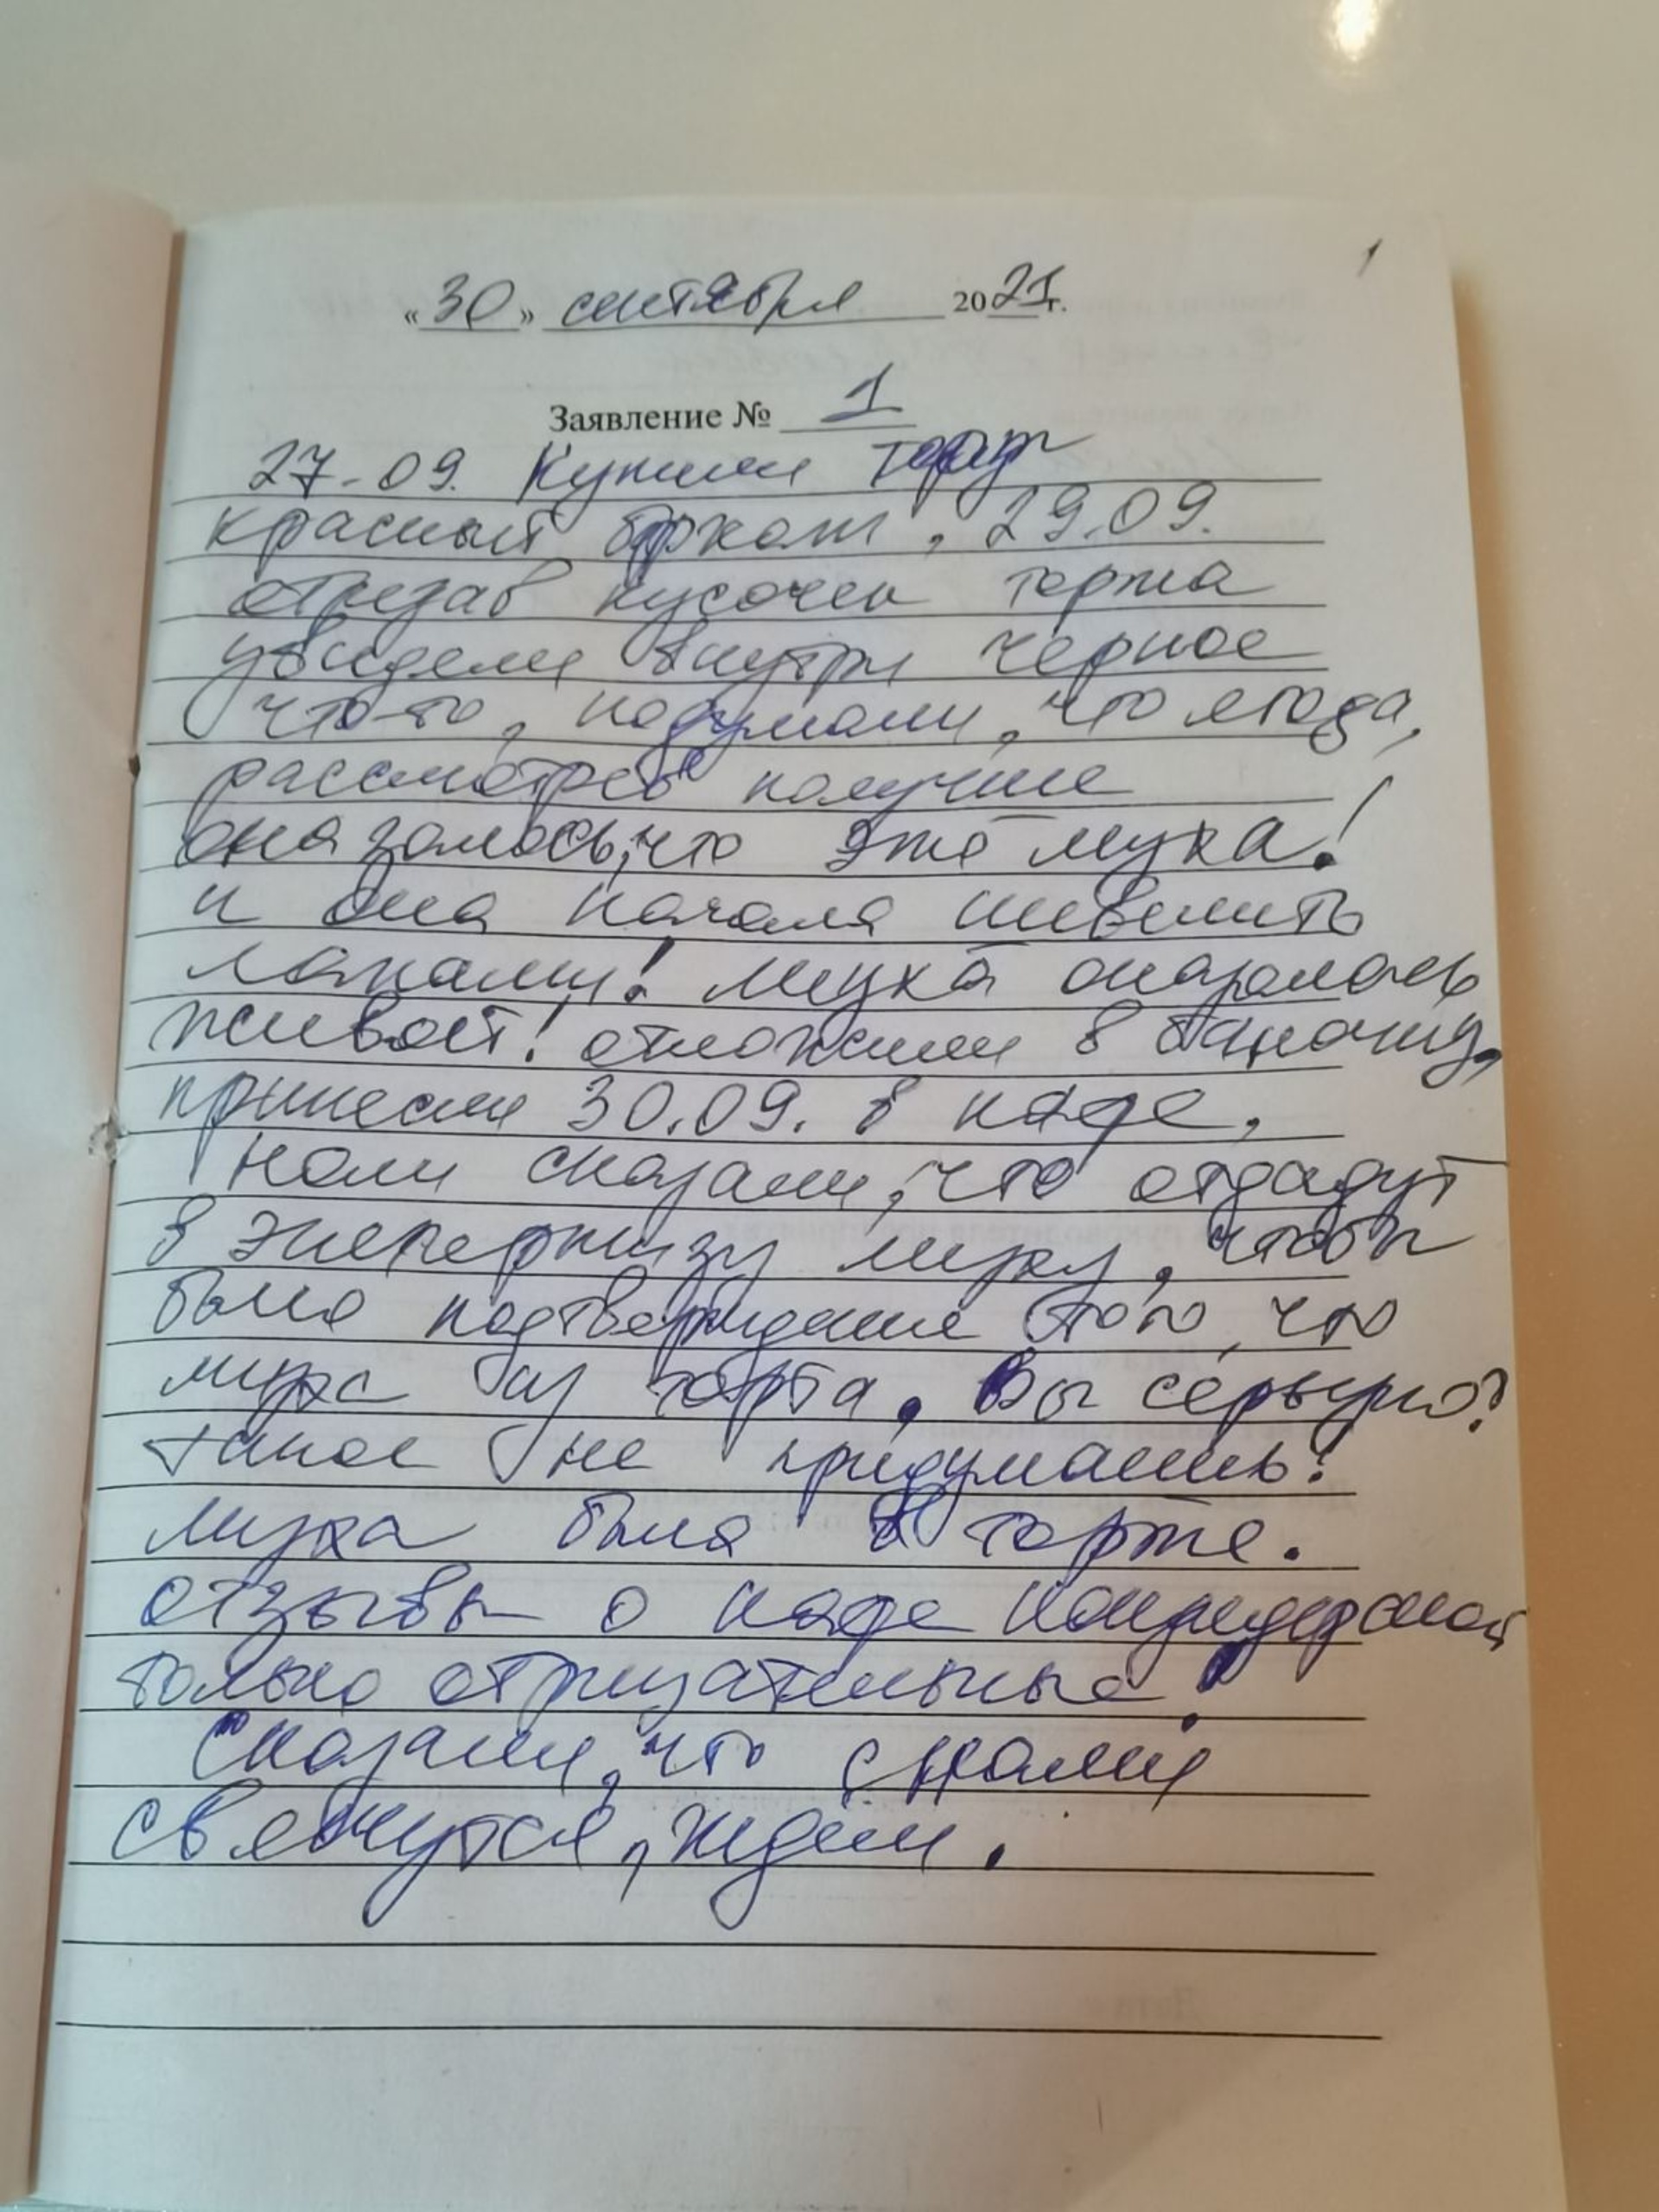 1
«30» сентября 2021г.
Заявление № 1
27.09. Купили торт
красный бархат, 29.09.
отрезав кусочек торта
увидели внутри черное
что-то, подумали, что ягода,
рассмотрев получше
оказалось, что это муха!
и она начала шевелить
лапами! Муха оказалась
живой! отложили в баночку,
принесли 30.09. в кафе,
Нам сказали, что отдадут
в экспертизу муху, чтобы
было подтверждение того, что
муха из торта. Вы серьезно?
такое не придумаешь!
Муха была в торте.
отзывы о кафе кондитерской
только отрицательные!
Сказали, что с нами
свяжутся, ждем.